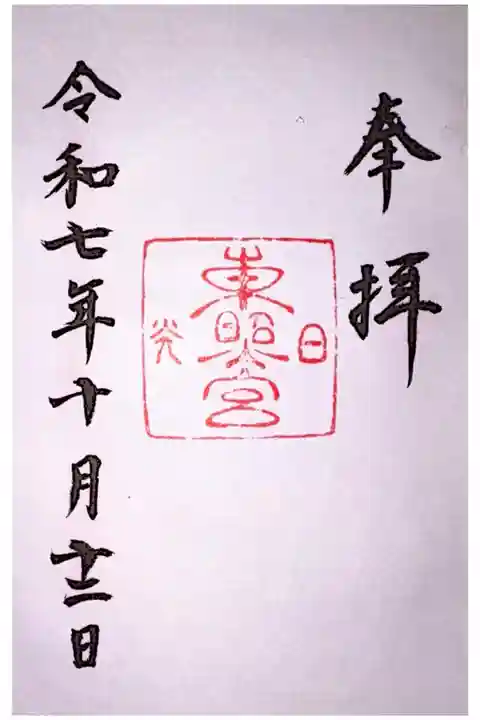 奉拝
日
東照宮
光
令和七年十月十二日